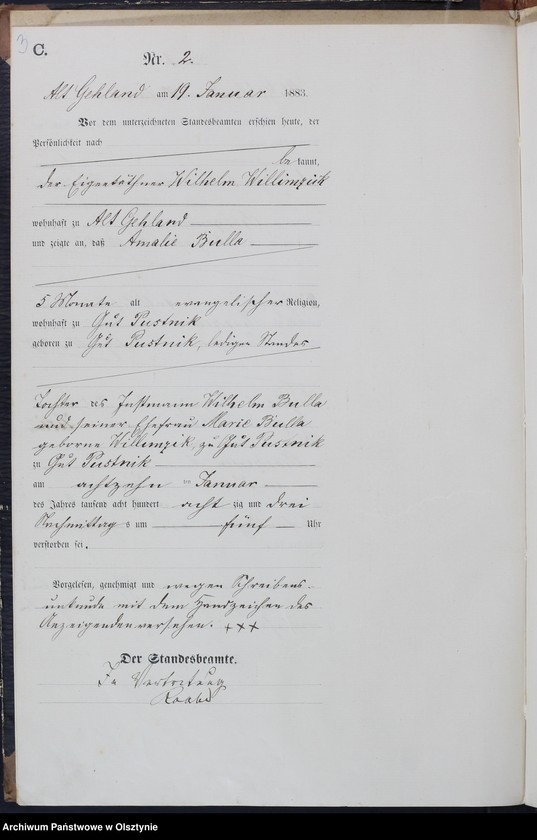 3
C.
Nr. 2.
Alt Gehland am 19. Januar 1883
Vor dem unterzeichneten Standesbeamten erschien heute, der
Persönlichkeit nach
be kannt,
der Eigenkäthner Wilhelm Willimzik
wohnhaft zu Alt Gehland
und zeigte an, daß Amalie Bulla
5 Monate alt evangelischer Religion,
wohnhaft zu Gut Pustnik
geboren zu Gut Pustnik, ledigen Standes
Tochter des Instmann Wilhelm Bulla
und seiner Ehefrau Marie Bulla
geborne Willimzik, zu Gut Pustnik
zu Gut Pustnik
am achtzehn ten Januar
des Jahres tausend acht hundert acht zig und drei
Nachmittag s um fünf Uhr
verstorben sei.
Vorgelesen, genehmigt und wegen Schreibens-
unkunde mit dem Handzeichen des
Anzeigenden versehen. +++
Der Standesbeamte.
In Vertretung
Raabe
Archiwum Państwowe w Olsztynie